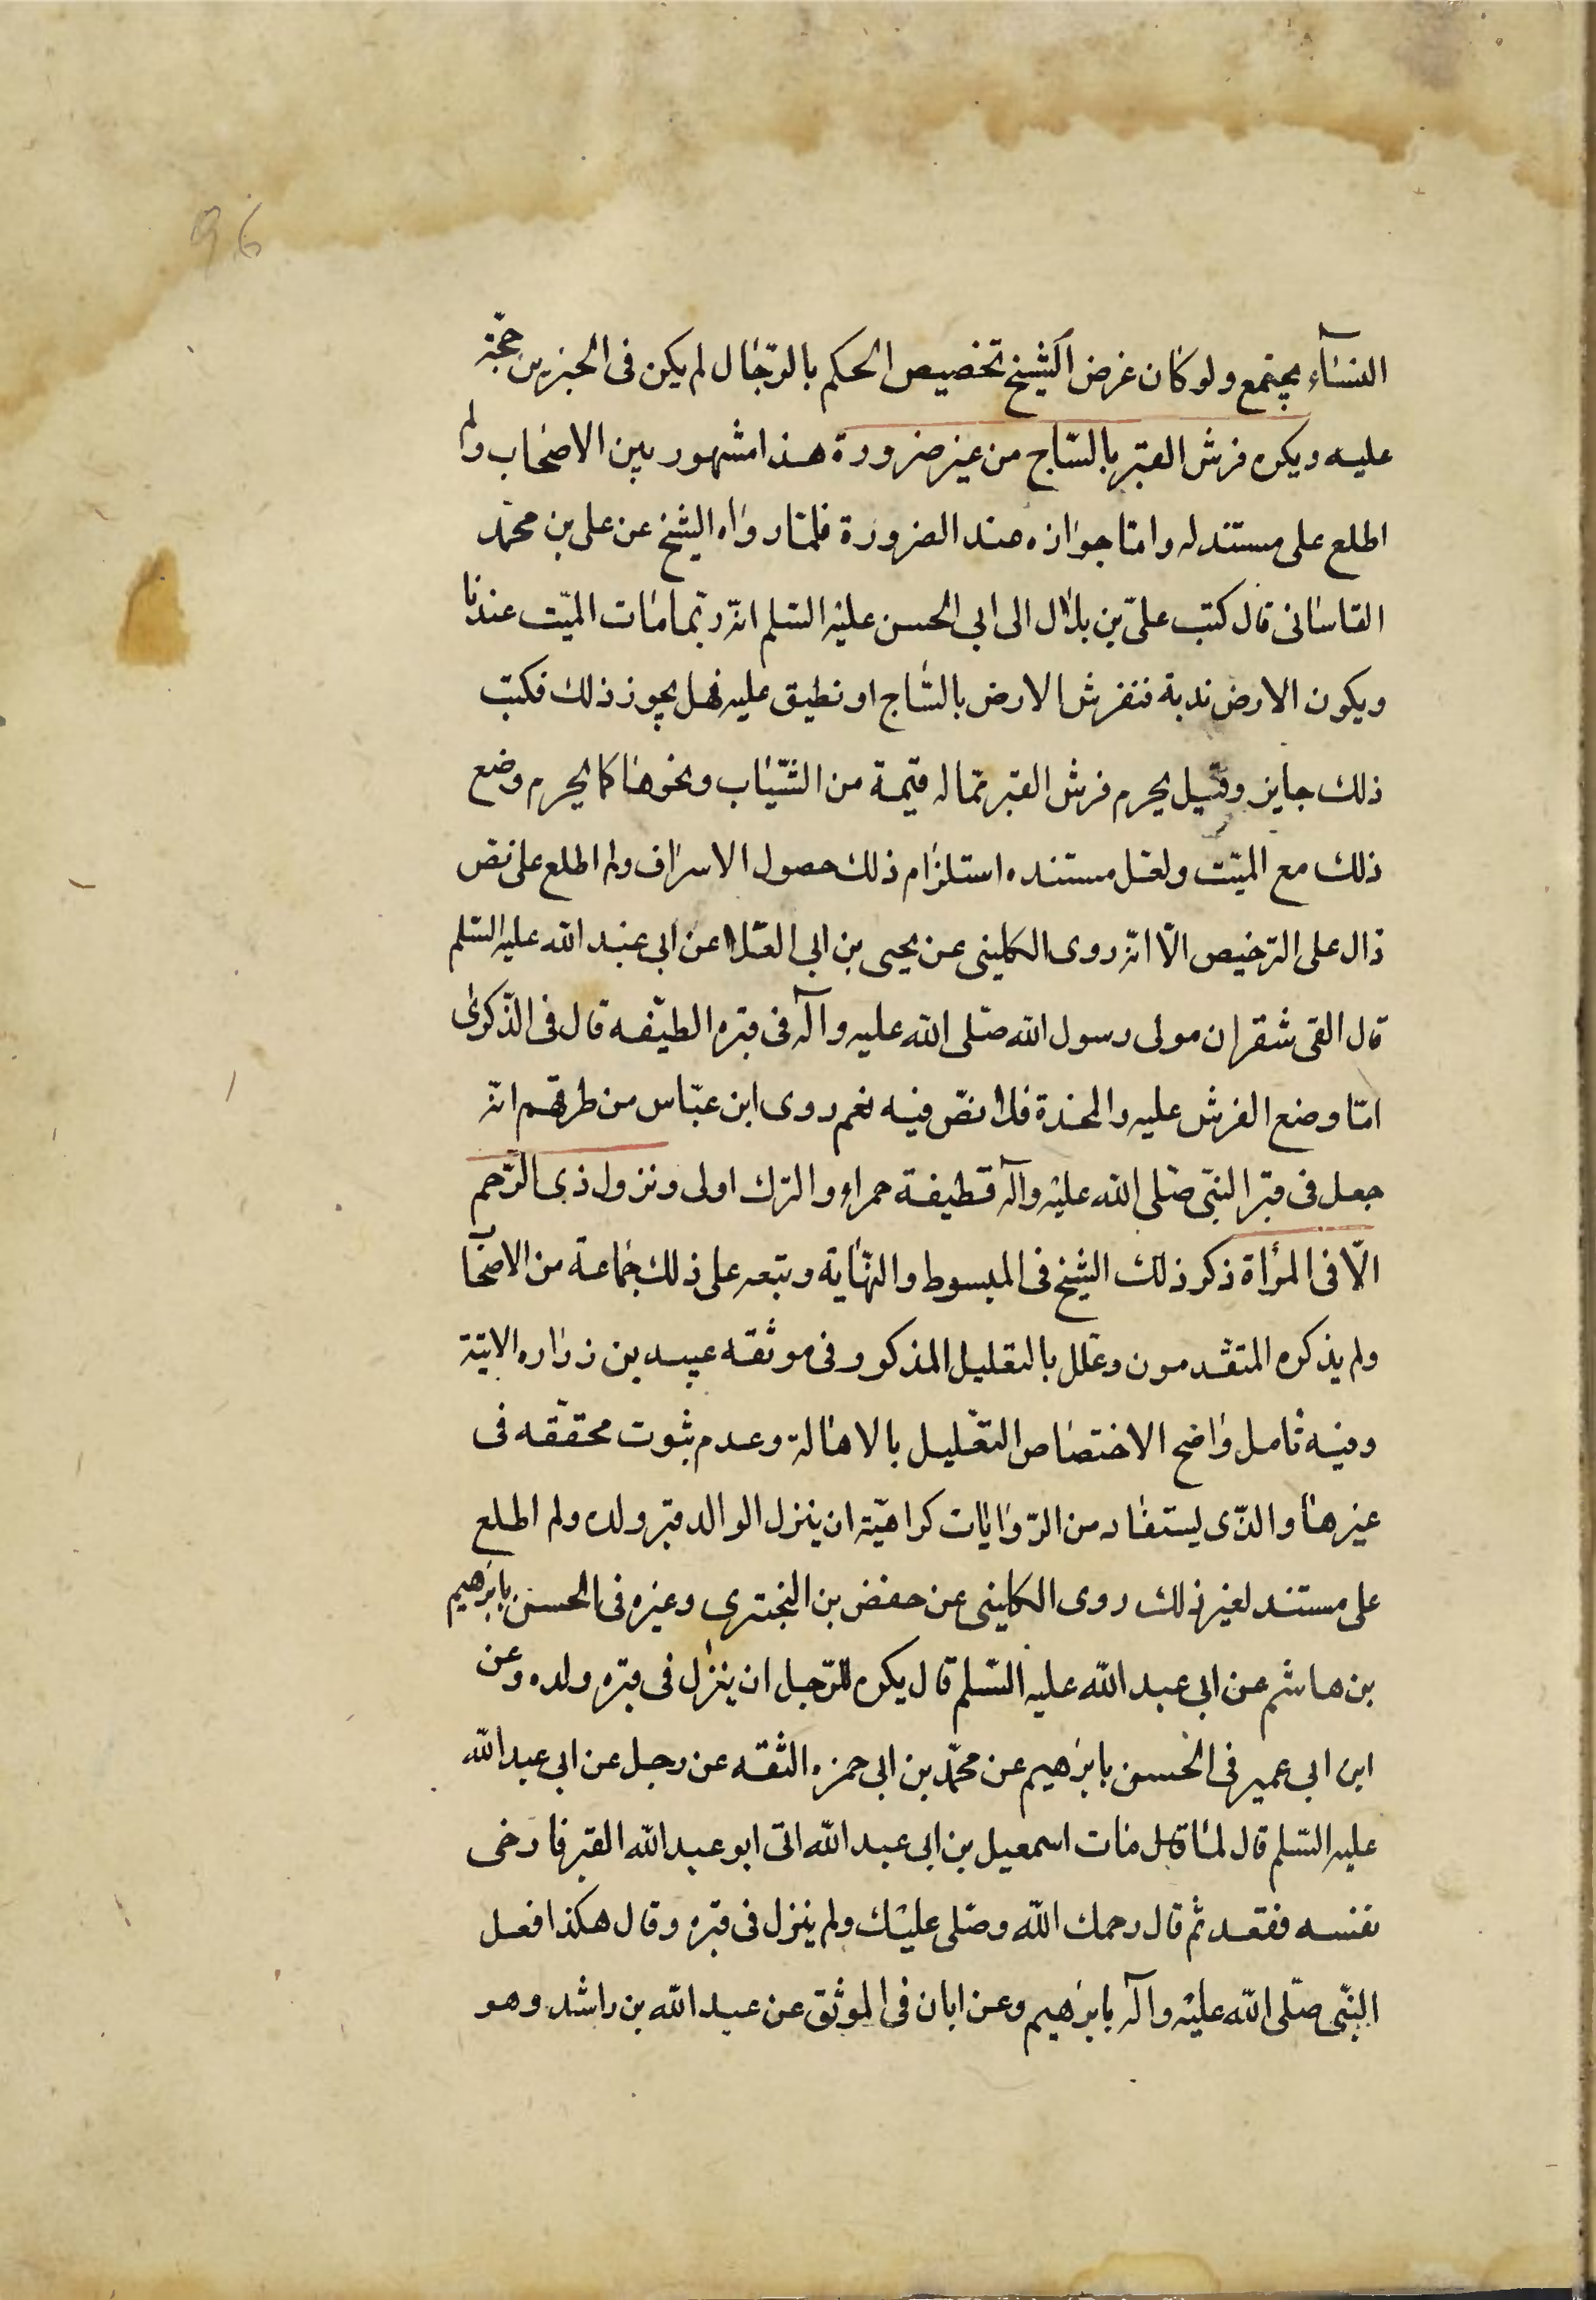 96
النسآء يجتمع ولو كان غرض الشيخ تخصيص الحكم بالرّجال لم يكن فى الخبرين حجّة
عليه ويكره فرش القبر بالسّاج من غير ضرورة هذا مشهور بين الاصحاب ولم
اطلع على مستند له وامّا جوازه عند الضرورة فلمّا رواه الشيخ عن على بن محمّد
القاسانى قال كتب علىّ بن بلال الى ابى الحسن عليه السّلم انّه ربّما مات الميّت عندنا
ويكون الارض ندبة فنفرش الارض بالسّاج او نطبق عليه فهل يجوز ذلك فكتب
ذلك جايز وقيل يحرم فرش القبر بماله قيمة من الثّياب ونحوها كما يحرم وضع
ذلك مع الميّت ولعلّ مستنده استلزام ذلك حصول الاسراف ولم اطلع على نصّ
دال على الترخيص الّا انّه روى الكلينى عن يحيى بن ابى العلا عن ابى عبد الله عليه السّلم
قال القى شقران مولى رسول الله صلّى الله عليه وآله فى قبره الطيفه قال فى الذّكرى
امّا وضع الفرش عليه والمخدة فلا نصّ فيه نعم روى ابن عبّاس من طرقهم انّه
جعل فى قبر النبّى صلّى الله عليه وآله قطيفة حمراء والترك اولى ونزول ذى الرّحم
الّا فى المرأة ذكر ذلك الشيخ فى المبسوط والنّهاية وتبعه على ذلك جماعة من الاصحاب
ولم يذكره المتقدمون وعلل بالتعليل المذكور وفى موثقه عبيد بن زراره الاتية
وفيه تامل واضح الاختصاص التعليل بالاهالة وعدم ثبوت محققه فى
غيرها والذّى يستفاد من الرّوايات كراهيّة ان ينزل الوالد قبر ولده ولم اطلع
على مستند لغير ذلك روى الكلينى عن حفص بن البخترى وغيره فى الحسن بابرهيم
بن هاشم عن ابى عبد الله عليه السّلم قال يكره للرّجل ان ينزل فى قبره ولده وعن
ابن ابى عمير فى الحسن بابرهيم عن محمّد بن ابى حمزه الثقه عن رجل عن ابى عبد الله
عليه السّلم قال لمّا مات اسمعيل بن ابى عبد الله اتى ابو عبد الله القبر فارخى
نفسه فقعد ثم قال رحمك الله وصلّى عليك ولم ينزل فى قبره وقال هكذا فعل
النبّى صلّى الله عليه وآله بابرهيم وعن ابان فى الموثق عن عبد الله بن راشد وهو